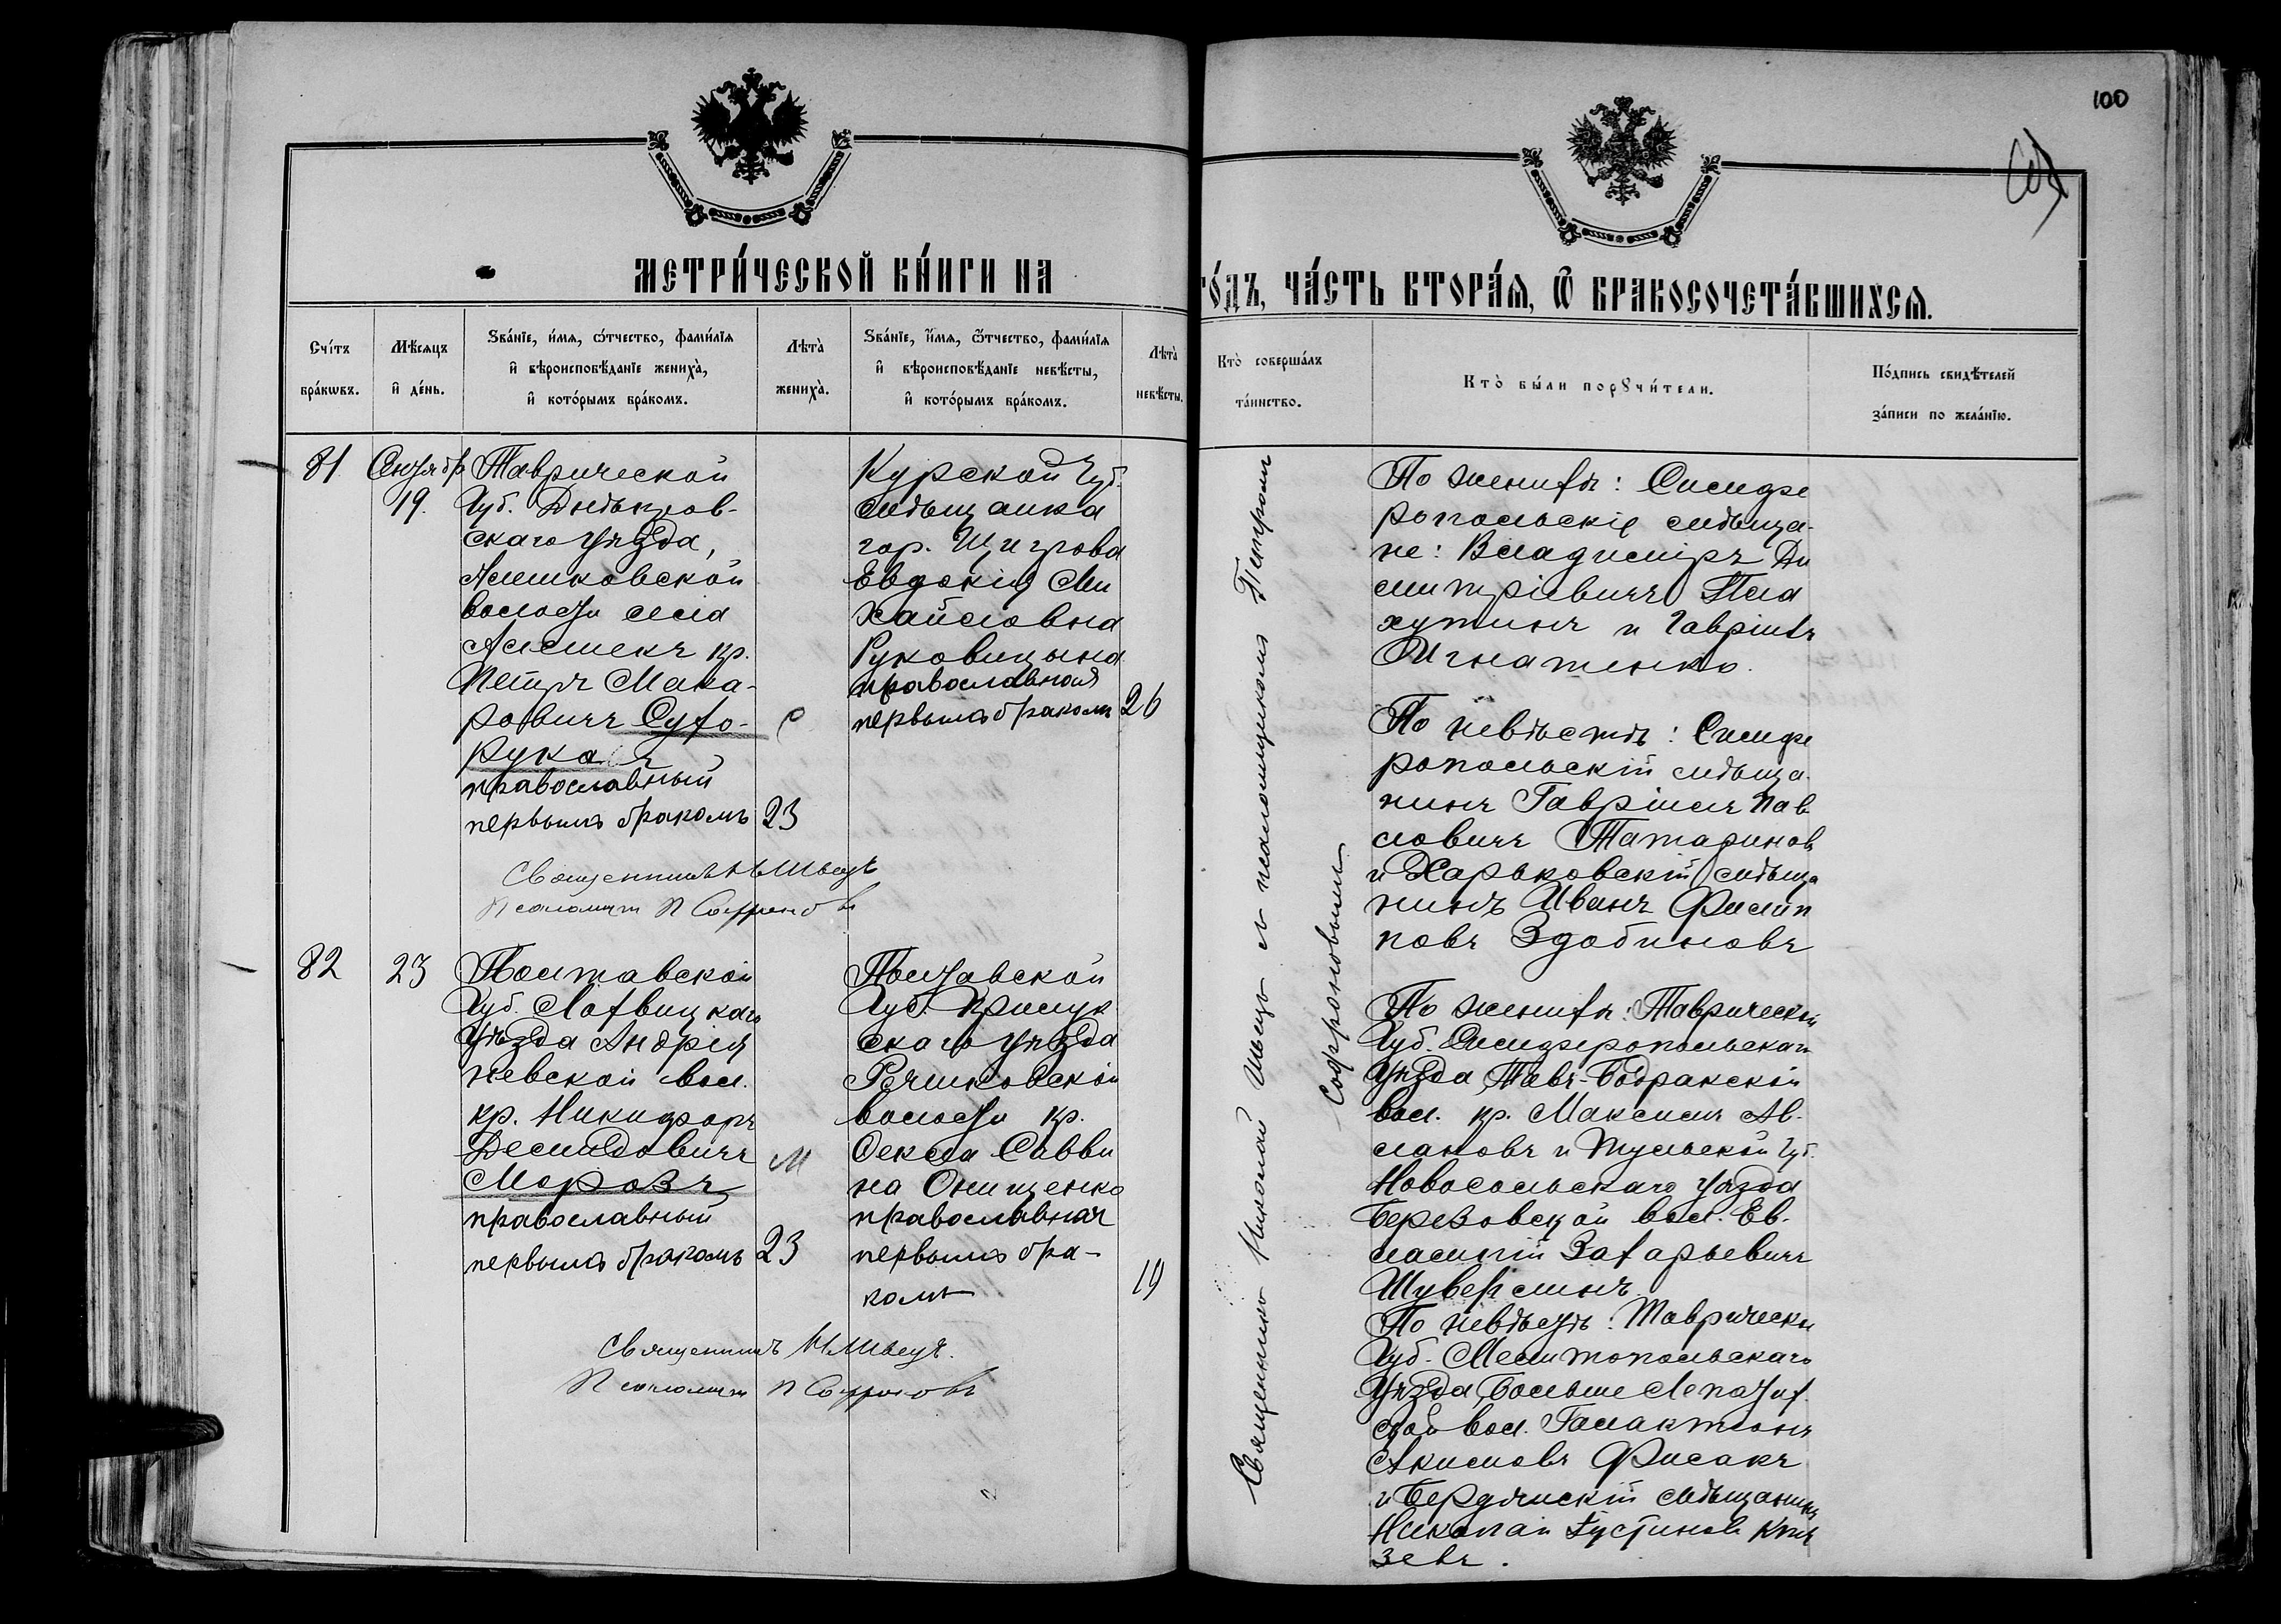 100
МЕТРИ́ЧЕСКОЙ КНИ́ГИ НА
ГО́ДЪ, ЧА́СТЬ ВТОРА́Ѧ, Ѿ БРАКОСОЧЕТА́ВШИХСѦ.
Счі́тъ бра́кѡвъ.
Мѣ́сѧцъ и҆ де́нь.
Ѕва́нїе, и҆́мѧ, ѻ҆́тчество, фами́лїѧ
и҆ вѣроисповѣ́данїе жениха̀,
и҆ кото́рымъ бра́комъ.
Лѣта̀ жениха̀.
Ѕва́нїе, и҆́мѧ, ѻ҆́тчество, фами́лїѧ
и҆ вѣроисповѣ́данїе невѣ́сты,
и҆ кото́рымъ бра́комъ.
Лѣта̀ невѣ́сты.
Кто̀ соверша́лъ та́инство.
Кто̀ бы́ли порꙋчи́тели.
По́дпись свидѣ́телей
за́писи по жела́нїю.
81
Сентябр
19.
Таврической
Губ. Днѣпров-
скаго уѣзда,
Алешковской
волости села
Алешекъ кр.
Петръ Мака-
ровичъ Сухо-
рука
православный
первымъ бракомъ
23
С
Курской Губ.
мѣщанка
гор. Щигрова
Евдокія Ми
хайловна
Руковицына
православная
первымъ бракомъ
26
Священникъ Н Швецъ
Псаломщ П Софроновъ
Священникъ Николай Швецъ съ псаломщикомъ Петромъ
Софроновымъ
По женихѣ: Симфе
ропольскіе мѣща-
не: Владиміръ Ди
митріевичъ Пла
хутинъ и Гавріилъ
Игнатенко.
По невѣстѣ: Симфе
ропольскій мѣща-
нинъ Гавріилъ Пав
ловичъ Татариновъ
и Харьковскій мѣща
нинъ Иванъ Филип
повъ Здобиновъ
82
23
Полтавской
Губ. Лохвицкаго
уѣзда Андрія
невской вол.
кр. Никифоръ
Демидовичъ
Морозъ
православный
первымъ бракомъ
23
М
Полтавской
Губ. Прилук
скаго уѣзда
волости кр.
Фекла Савви
на Онищенко
православная
первымъ бра-
комъ
19
Священникъ Н Швецъ.
Псаломщ П Софроновъ
По женихѣ: Таврической
Губ. Симферопольскаго
уѣзда, Тавъ-Бодракской
вол. кр. Максимъ Ав-
лановъ и Тульской Губ.
Новосольскаго уѣзда
Березовской вол. Ев-
лампій Захарьевичъ
По невѣстѣ: Таврическ
Губ. Мелитопольскаго
уѣзда, Больше Лепатих
ской вол. Галактіонъ
Акимовъ Фисакъ
и Бердянскій мѣщанинъ
Николай Густиновъ Кня
зевъ.